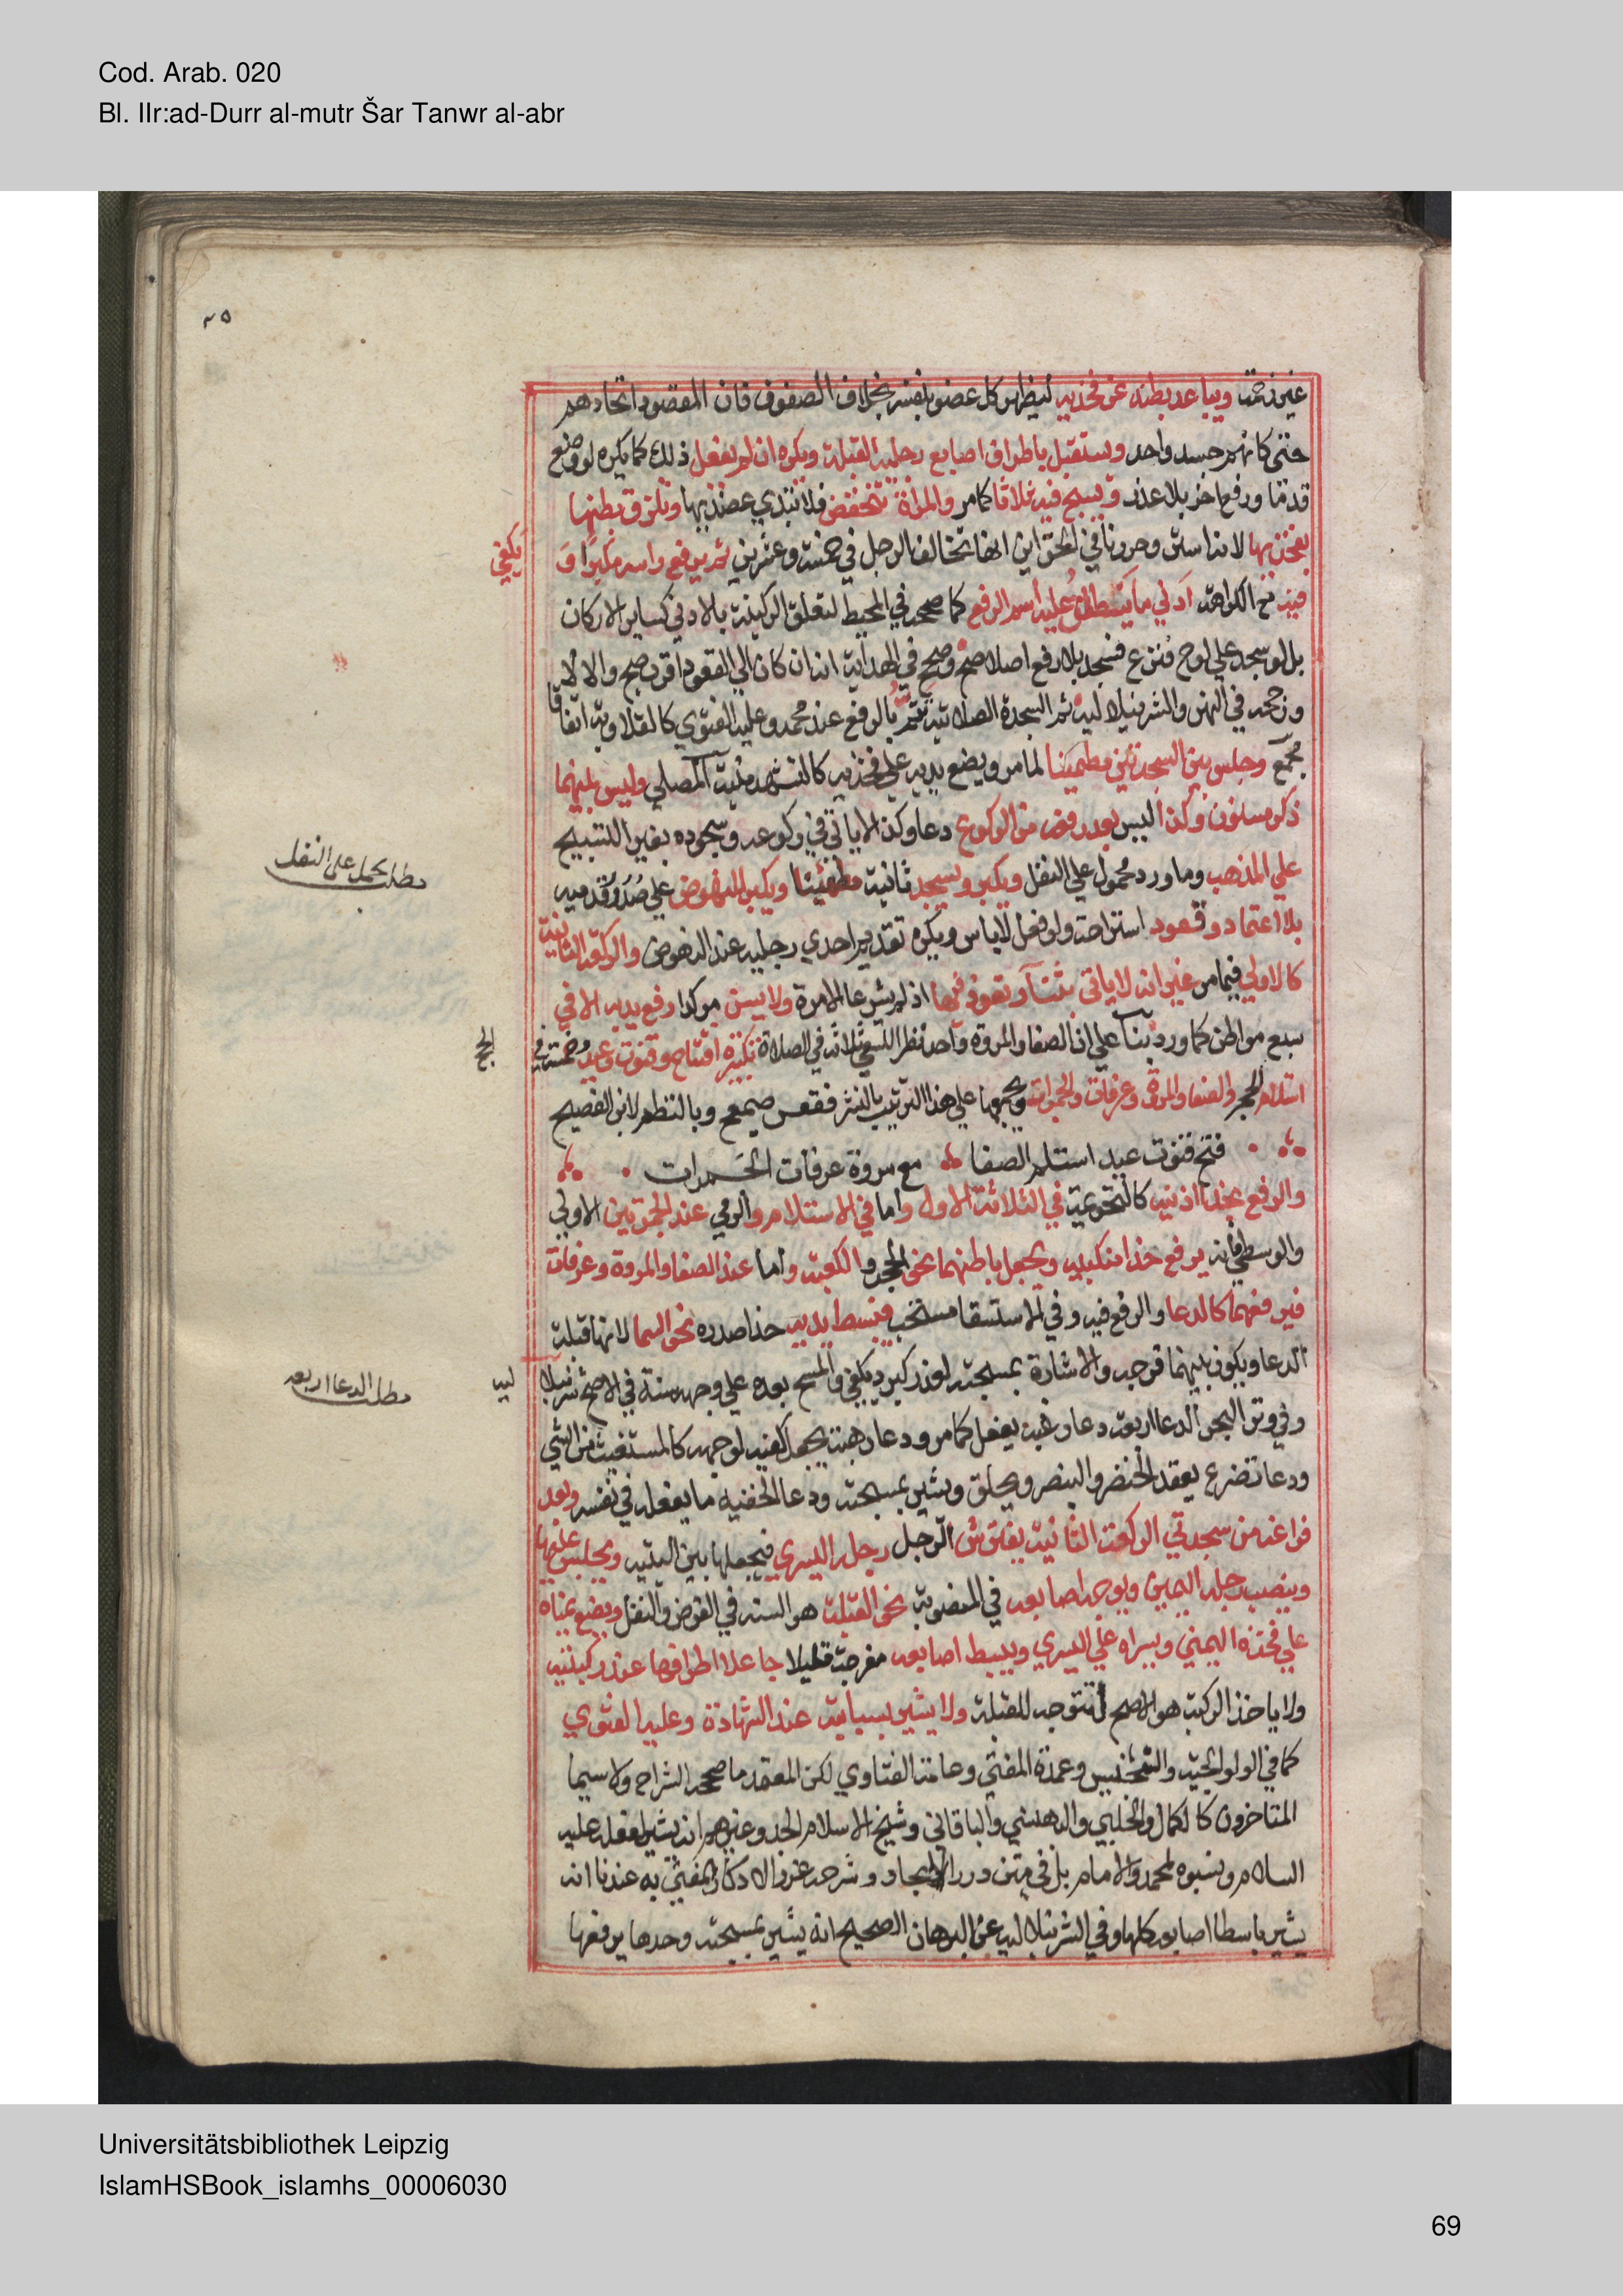 Cod. Arab. 020
Bl. IIr:ad-Durr al-mutr Šar Tanwr al-abr
٣٥
غير زحمة ويباعد بطنه عن فخذيه ليظهر كل عضو بنفسه بخلاف الصفوف فان المقصود اتحادهم
حتى كانهم جسد واحد ويستقبل باطراف اصابع رجليه القبلة ويكره ان لم يفعل ذلك كما يكره لو وضع
قدما ورفع اخر بلا عذر ويسبح فيه ثلاثا كما مر والمراة تنخفض فلا تبدي عضديها وتلزق بطنها
بفخذيها لانه استر وحررنا في الخزاين انها تخالف الرجل في خمسة وعشرين ثم يرفع راسه مكبرا و
يكفي
فيه مع الكراهة ادني ما يطلق عليه اسم الرفع كما صححه في المحيط لتعلق الركنية بالادني كساير الاركان
بل لو سجد علي لوح فنزع فسجد بلا رفع اصلا صح وصحح في الهداية انه ان كان الي القعود اقرب صح والا لا
ورجحه في النهر والشرنبلالية ثم السجدة الصلاتية تتم بالرفع عند محمد وعليه الفتوي كالتلاوية اتفاقا
مجمع وجلس بين السجدتين مطمئنا لما مر ويضع يديه علي فخذيه كالتشهد منية المصلي وليس بينهما
ذكر مسنون وكذا ليس بعد رفعه من الركوع دعا وكذا لا ياتي في ركوعه وسجوده بغير التسبيح
علي المذهب وما ورد محمول علي النفل ويكبر ويسجد ثانية مطمئنا ويكبر للنهوض علي صدور قدميه
مطلب يحمل على النفل
بلا اعتماد وقعود استراحة ولو فعل لا باس ويكره تقديم احدي رجليه عند النهوض والركعة الثانية
كالاولي فيما مر غير انه لا ياتي بثنا وتعوذ فيها اذ لم يشرعا الا مرة ولا يسن موكدا رفع يديه الا في
سبع مواطن كما ورد بنا علي ان الصفا والمروة واحد نظرا للسعي ثلاثة في الصلاة تكبيرة افتتاح وقنوت وعيد وخمسة في
الحج
استلام الحجر والصفا والمروة وعرفات والجمرات ويجمعها علي هذا الترتيب بالنثر فقعس صمعج وبالنظم لابن الفصيح
فتح قنوت عيد استلم الصفا مع مروة عرفات الجمرات
والرفع بحذا اذنيه كالتحريمة في الثلاثة الاول واما في الاستلام والرمي عند الجمرتين الاولي
والوسطي فانه يرفع حذا منكبيه ويجعل باطنهما نحو الحجر والكعبة واما عند الصفا والمروة وعرفات
فيرفعهما كالدعا والرفع فيه وفي الاستسقا مستحب فيبسط يديه حذا صدره نحو السما لانها قبلة
الدعا ويكون بينهما فرجة والاشارة بمسبحته لعذر كبرد يكفي والمسح بعده علي وجهه سنة في الاصح شرنبلا
لية
وفي وتر البحر الدعا اربعة دعا رغبة يفعل كما مر ودعا رهبة يجعل كفيه لوجهه كالمستغيث من الشي
مطلب الدعا اربعه
ودعا تضرع يعقد الخنصر والبنصر ويحلق ويشير بمسبحته ودعا الخفية ما يفعله في نفسه وبعد
فراغه من سجدتي الركعة الثانية يفترش الرجل رجله اليسري فيجعلها بين اليتيه ويجلس عليها
وينصب رجله اليمين ويوجه اصابعه في المنصوبة نحو القبلة هو السنة في الفرض والنفل ويضع يمناه
علي فخذه اليمني ويسراه علي اليسري ويبسط اصابعه مفرجة قليلا جاعلا اطرافها عند ركبتيه
ولا ياخذ الركبة هو الاصح لتتوجه للقبلة ولا يشير بسبابته عند الشهادة وعليه الفتوي
كما في الولوالجية والتجنيس وعمدة المفتي وعامة الفتاوي لكن المعتمد ما صححه الشراح ولا سيما
المتاخرون كالكمال والحلبي والبهنسي والباقاني وشيخ الاسلام الجد وغيرهم انه يشير لفعله عليه
السلام ونسبوه لمحمد والامام بل في متن درر البحار وشرحه غرر الاذكار المفتي به عندنا انه
يشير باسطا اصابعه كلها وفي الشرنبلالية عن البرهان الصحيح انه يشير بمسبحته وحدها يرفعها
Universitätsbibliothek Leipzig
IslamHSBook_islamhs_00006030
69